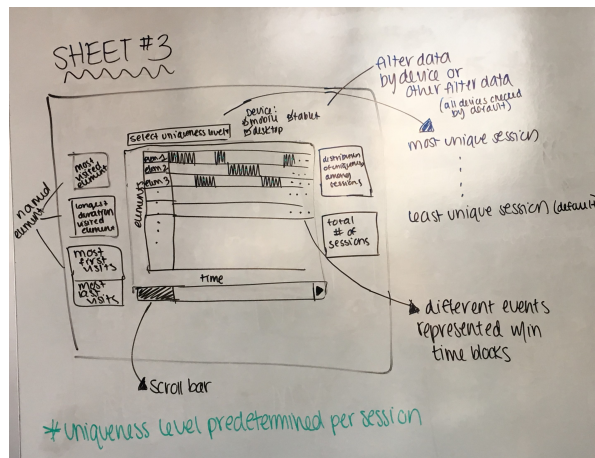 SHEET #3
filter data
by device or
other filter data
(all devices checked
by default)
Device:
mobile tablet
desktop
select uniqueness level
most unique session
least unique session (default)
named
elements
most
visited
element
longest
duration
visited
element
most
first
visits
most
last
visits
elements
elem 1
elem 2
elem 3
time
distribution
of uniqueness
among
sessions
total
# of
sessions
different events
represented w/in
time blocks
scroll bar
* uniqueness level predetermined per session